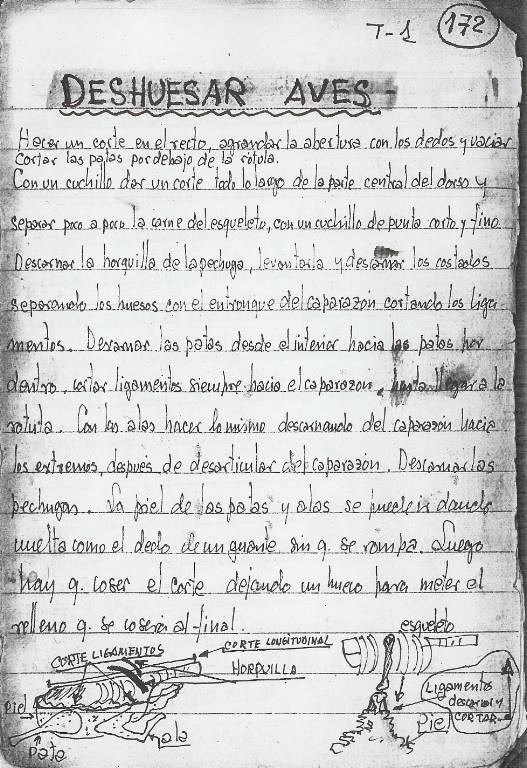 T-1 172
DESHUESAR AVES-
Hacer un corte en el recto, agrandar la abertura con los dedos y vaciar
Cortar las patas por debajo de la rótula.
Con un cuchillo dar un corte todo lo largo de la parte central del dorso y
separar poco a poco la carne del esqueleto, con un cuchillo de punta corto y fino
Descarnar la horquilla de la pechuga, levantarla y descarnar los costados
separando los huesos con el entronque del caparazon cortando los liga-
mentos. Descarnar las patas desde el interior hacia las patas por
dentro, cortar ligamentos siempre hacia el caparazon, hasta llegar a la
rotula. Con las alas hacer lo mismo descarnando del caparazón hacia
los extremos, después de desarticular del caparazón. Descarnar las
pechugas. La piel de las patas y alas se puede ir dando
vuelta como el dedo de un guante sin q. se rompa. Luego
hay q. coser el corte dejando un hueco para meter el
relleno q. se coserá al final.
CORTE LIGAMENTOS
CORTE LONGITUDINAL
HORQUILLA
Piel
Pata
ala
esqueleto
Ligamentos
descarnar y
CORTAR
Piel